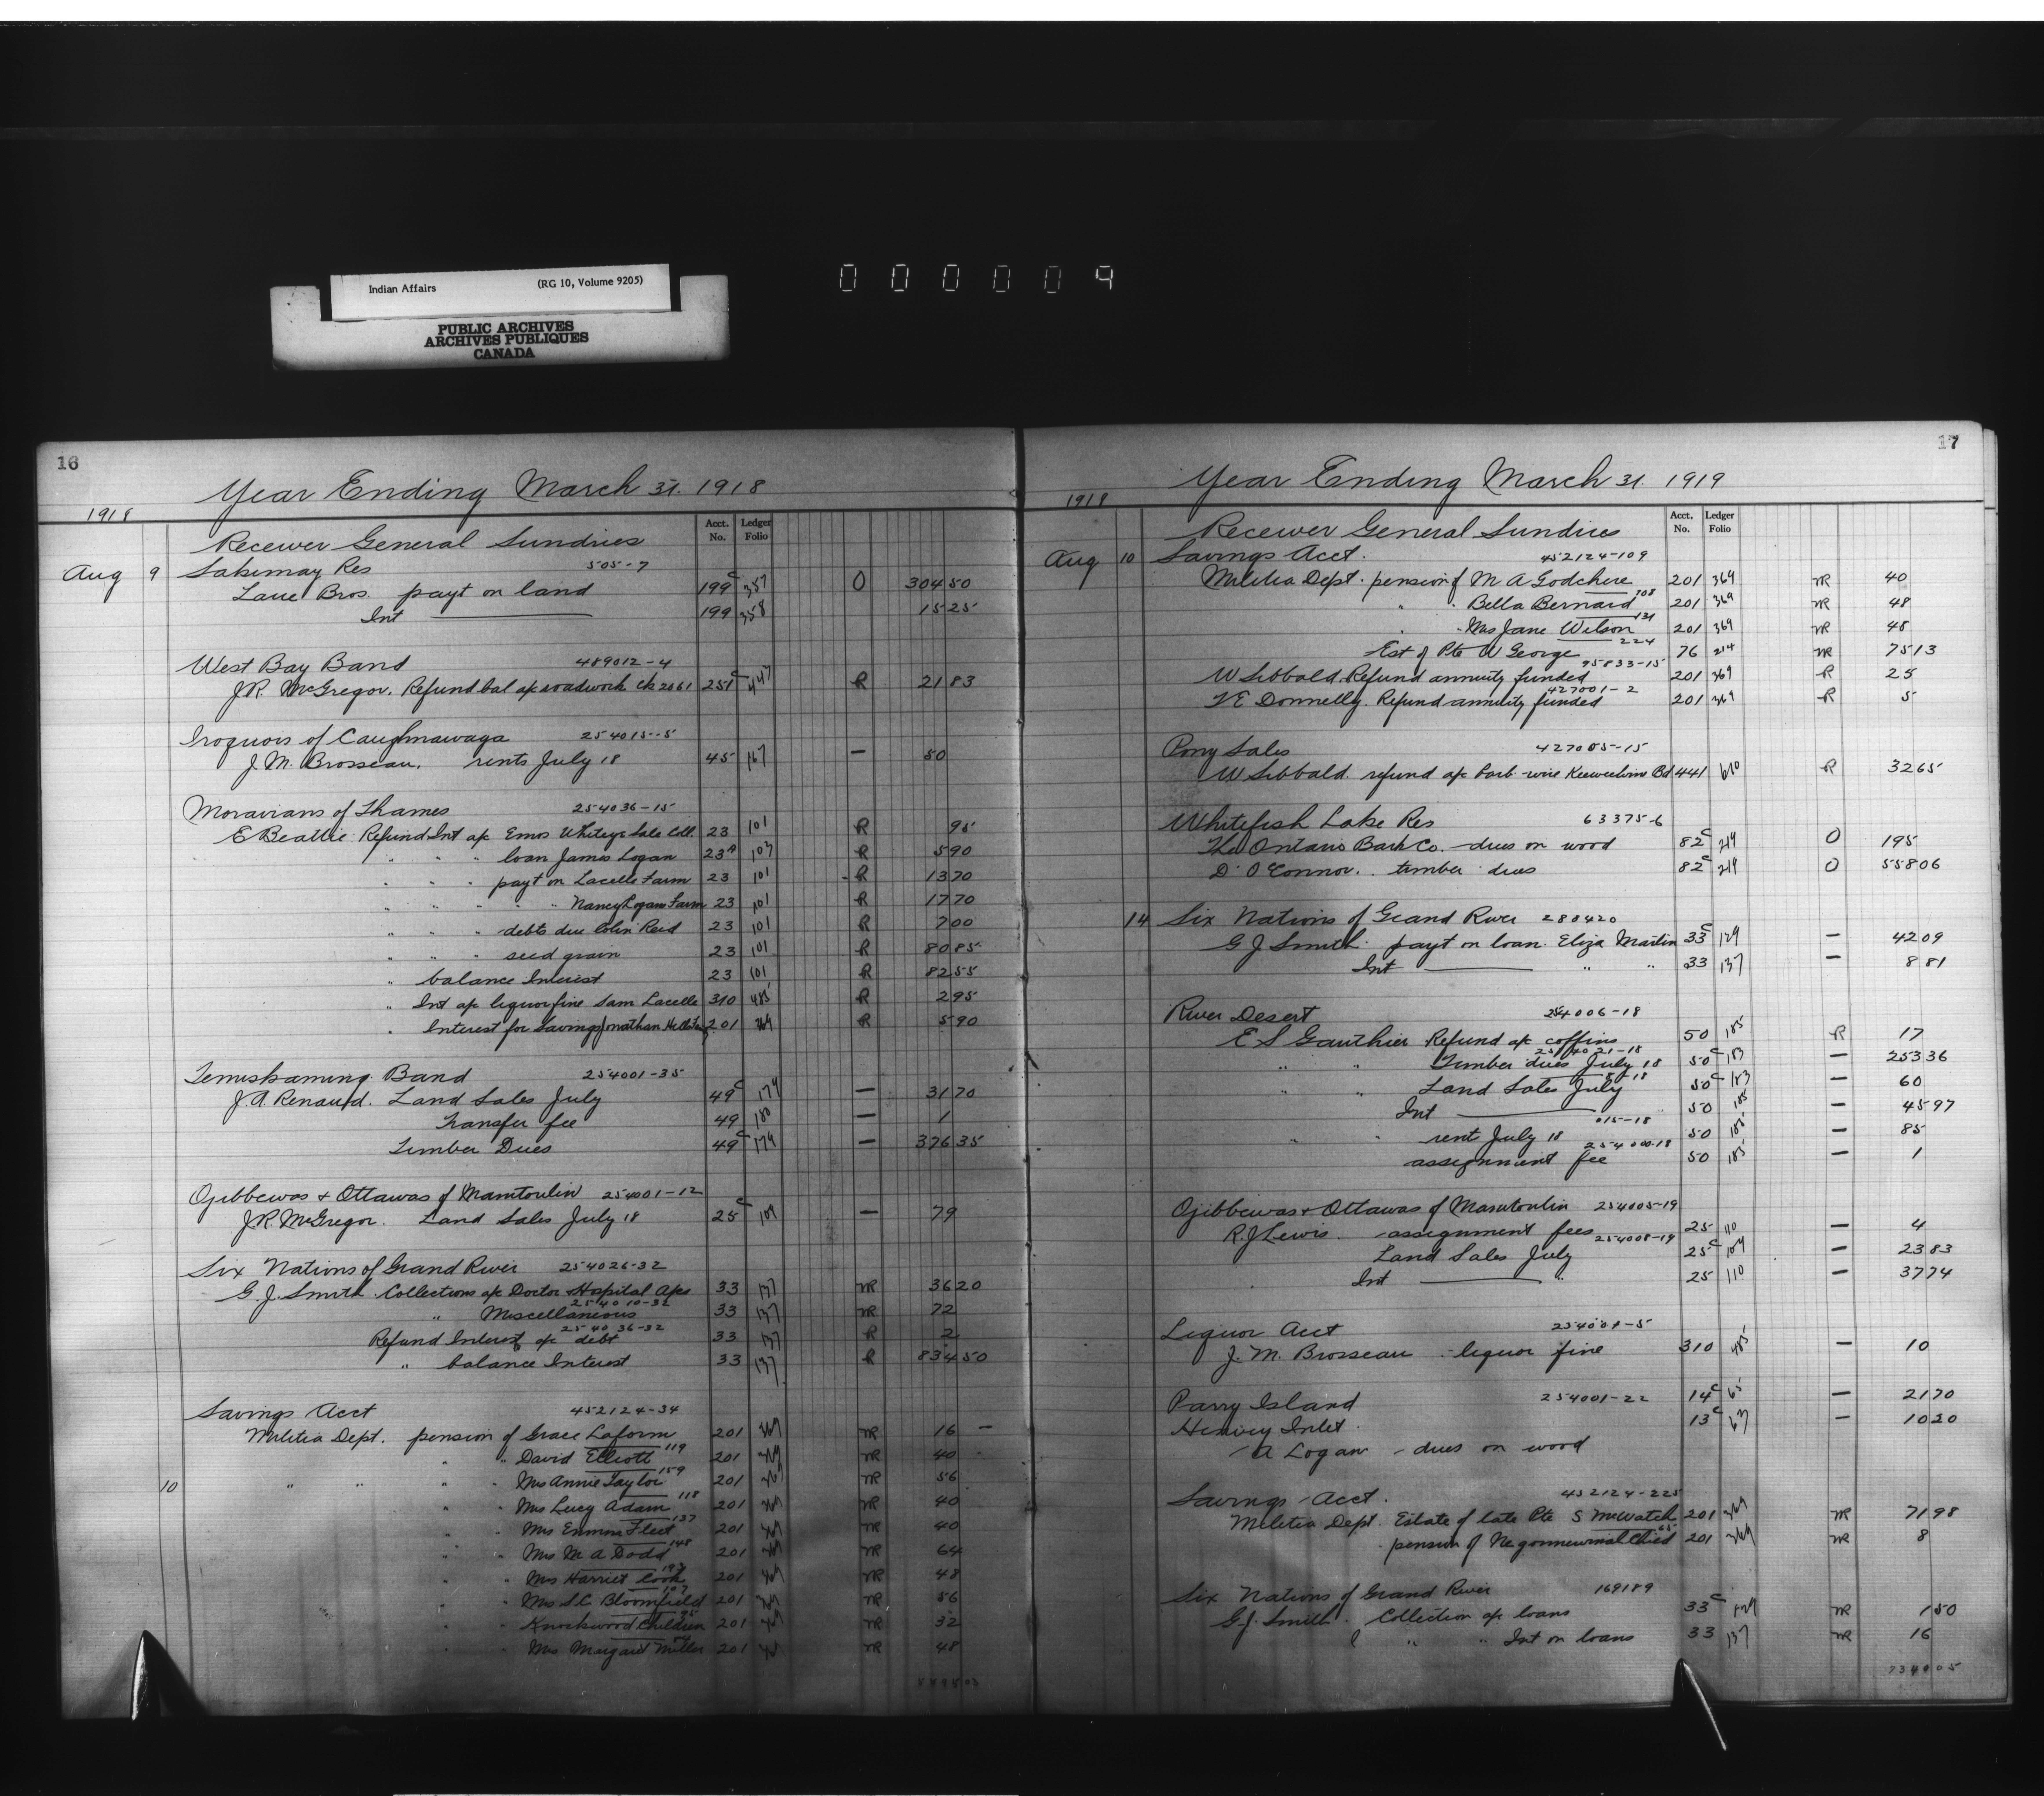 Indian Affairs (RG 10, Volume 9205)
PUBLIC ARCHIVES
ARCHIVES PUBLIQUES
CANADA
000009
16
Year Ending March 31. 1918
1918
Acct. No. Ledger Folio
Receiver General Sundries
Aug 9 Sakimay Res 505-7
Lane Bros. payt on land 199c 357 O 304 50
Int 199 358 15 25
West Bay Band 489012-4
J.R. McGregor. Refund bal a/c roadwork ck 2061 251c 447 R 21 83
Iroquois of Caughnawaga 254015-5
J.M. Brosseau. rents July 18 45 167 — 50
Moravians of Thames 254036-15
E Beattie Refund Int a/c Emos Whiteye Sale Coll. 23 101 R 95
" " " loan James Logan 23A 103 R 5 90
" " " payt on Lacelle Farm 23 101 R 13 70
" " " " " Nancy Logan Farm 23 101 R 17 70
" " " debts due Colin Reid 23 101 R 7 00
" " " seed grain 23 101 R 80 85
" balance Interest 23 101 R 82 55
" Int a/c liquor fine Sam Lacelle 310 485 R 2 95
" Interest for Savings Jonathan 201 369 R 5 90
Temiskaming Band 254001-35
J.A. Renaud. Land Sales July 49c 179 — 31 70
Transfer fee 49 180 — 1
Timber Dues 49c 179 — 376 35
Ojibbewas & Ottawas of Manitoulin 254001-12
J.R. McGregor. Land Sales July 18 25c 109 — 79
Six Nations of Grand River 254026-32
G.J. Smith Collections a/c Doctor Hospital A/cs 33 137 NR 36 20
254010-32
" Miscellaneous 33 137 NR 72
254036-32
Refund Interest a/c debt 33 137 R 2
" balance Interest 33 137 R 834 50
Savings Acct 452124-34
Militia Dept. pension of Grace Laform 201 369 NR 16 —
119
" " David Elliott 201 369 NR 40 -
159
10 " " " " Mrs Annie Taylor 201 369 NR 56
118
" " Mrs Lucy Adam 201 369 NR 40
137
" " Mrs Emma Fleet 201 369 NR 40
148
" " Mrs M A Dodd 201 369 NR 64
" " Mrs Harriet Cook 201 369 NR 48
107
" " Mrs S.C. Bloomfield 201 369 NR 56
" " Knockwood Children 201 369 NR 32
" " Mrs Margaret Miller 201 369 NR 48
17
Year Ending March 31. 1919
1918
Acct. No. Ledger Folio
Receiver General Sundries
Aug 10 Savings Acct. 452124-109
Militia Dept. pension of M A Godchere 201 369 NR 40
108
" " Bella Bernard 201 369 NR 48
121
" " Mrs Jane Wilson 201 369 NR 48
224
Est of Pte W George 76 214 NR 75 13
95833-15
W Sibbald. Refund annuity funded 201 369 R 25
427001-2
T.E. Donnelly. Refund annuity funded 201 369 R 5
Pony Sales 427005-15
W Sibbald refund a/c barb-wire Keeweehwin Bd 441 610 R 32 65
Whitefish Lake Res 63375-6
The Ontario Bark Co. dues on wood 82c 219 O 1 95
D. O'Connor. timber dues 82c 219 O 558 06
14 Six Nations of Grand River 280420
G J Smith. payt on loan Eliza Martin 33c 129 — 42 09
Int " " 33 137 — 8 81
River Desert 254006-18
E S Gauthier Refund a/c coffins 50 185 R 17
254021-18
" " Timber dues July 18 50c 183 — 253 36
" " Land Sales July 50c 183 — 60
Int 50 185 — 45 97
015-18
" " rent July 18 50 185 — 85
254000-18
assignment fee 50 185 — 1
Ojibbewas & Ottawas of Manitoulin 254005-19
R.J. Lewis. assignment fees 25 110 — 4
254008-19
Land Sales July 25c 109 — 23 83
Int " 25 110 — 37 74
Liquor Acct 254004-5
J. M. Brosseau liquor fine 310 485 — 10
Parry Island 254001-22 14c 65 — 21 70
Henvey Inlet 13c 63 — 10 20
A Logan - dues on wood
Savings Acct. 452124-225
Militia Dept. Estate of late Pte S McWatch 201 369 NR 71 98
65
pension of 201 369 NR 8
Six Nations of Grand River 169189
G.J. Smith. Collection a/c loans 33c 129 NR 1 50
" " Int on loans 33 137 NR 16
7340 05